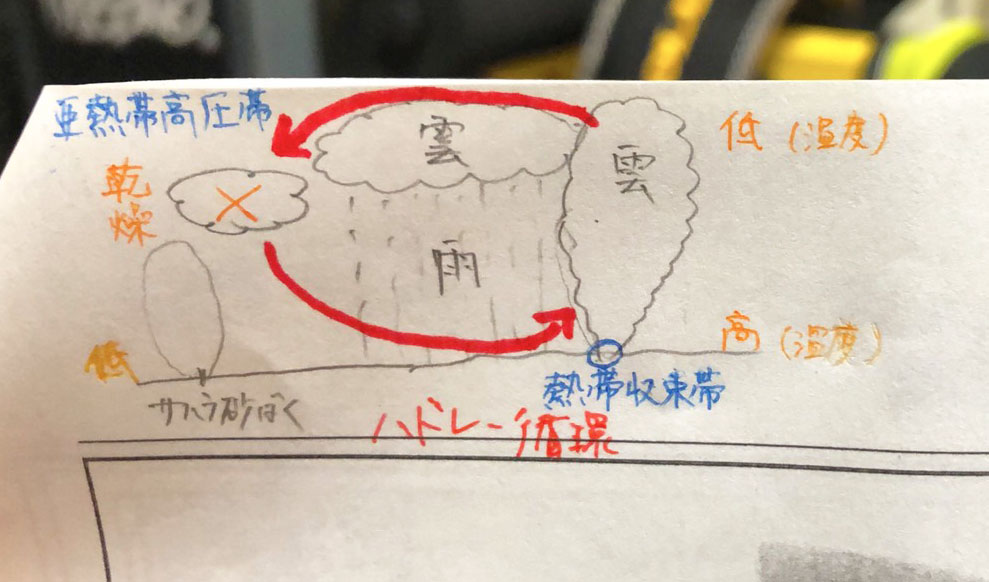 亜熱帯高圧帯
乾燥
雲
雲
低（温度）
雨
低
高（温度）
サハラ砂ばく
熱帯収束帯
ハドレー循環